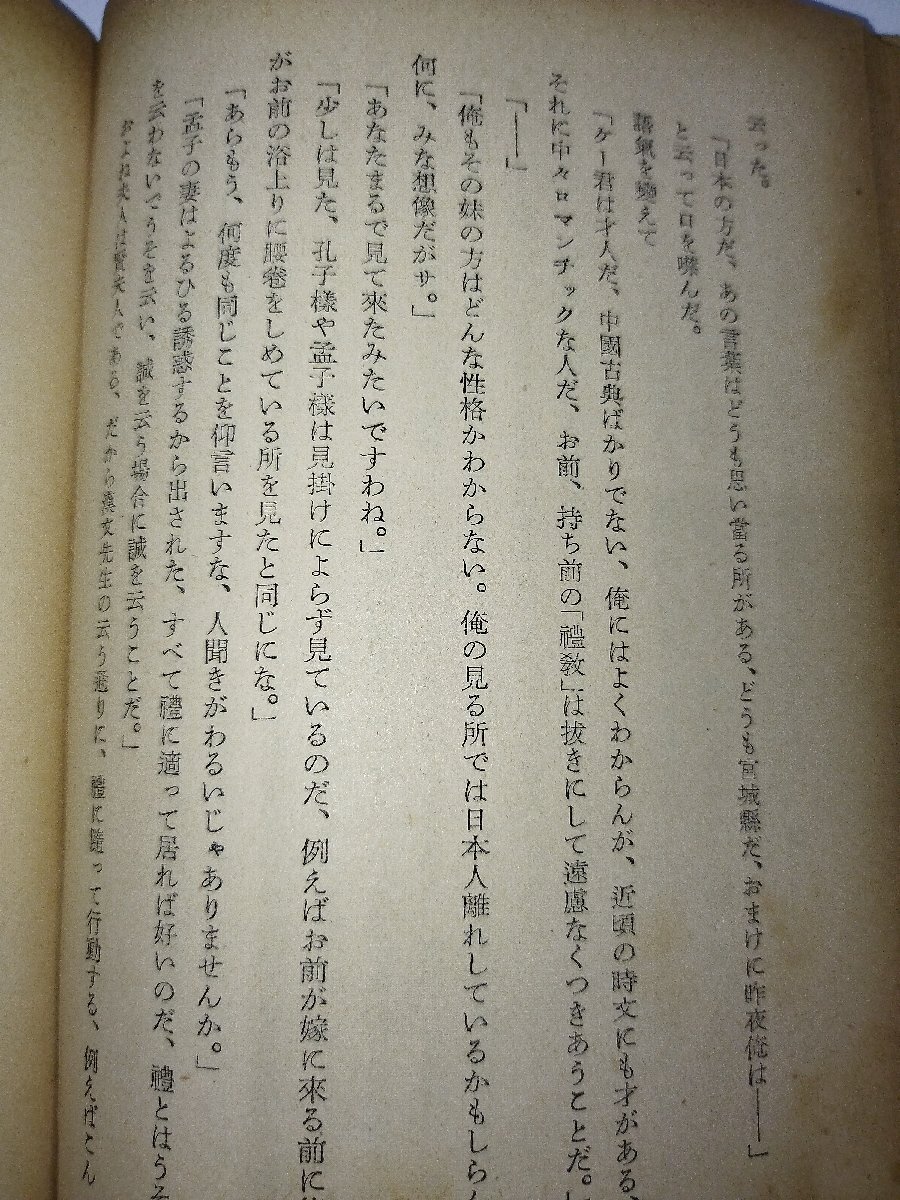 云った。
「日本の方だ、あの言葉はどうも思い當る所がある、どうも宮城縣だ、おまけに昨夜俺は――」
と云って口を噤んだ。
語氣を變えて
「ケー君は才人だ、中國古典ばかりでない、俺にはよくわからんが、近頃の時文にも才がある、
それに中々ロマンチックな人だ、お前、持ち前の「禮敎」は抜きにして遠慮なくつきあうことだ。」
「――」
「俺もその妹の方はどんな性格かわからない。俺の見る所では日本人離れしているかもしらん
何に、みな想像だがサ。」
「あなたまるで見て來たみたいですわね。」
「少しは見た、孔子様や孟子様は見掛けによらず見ているのだ、例えばお前が嫁に來る前に
がお前の浴上りに腰卷をしめている所を見たと同じにな。」
「あらもう、何度も同じことを仰言いますな、人聞きがわるいじゃありませんか。」
「孟子の妻はよるひる誘惑するから出された、すべて禮に適って居れば好いのだ、禮とはうそ
を云わないでうそを云い、誠を云う場合に誠を云うことだ。」
およね夫人は賢夫人である、だから漢文先生の云う通りに、禮に隨って行動する、例えばこん